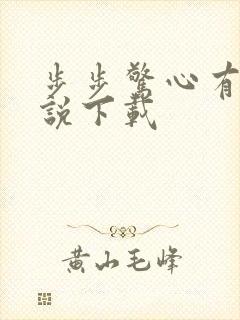 步步驚心有
說下載
黃山毛峰